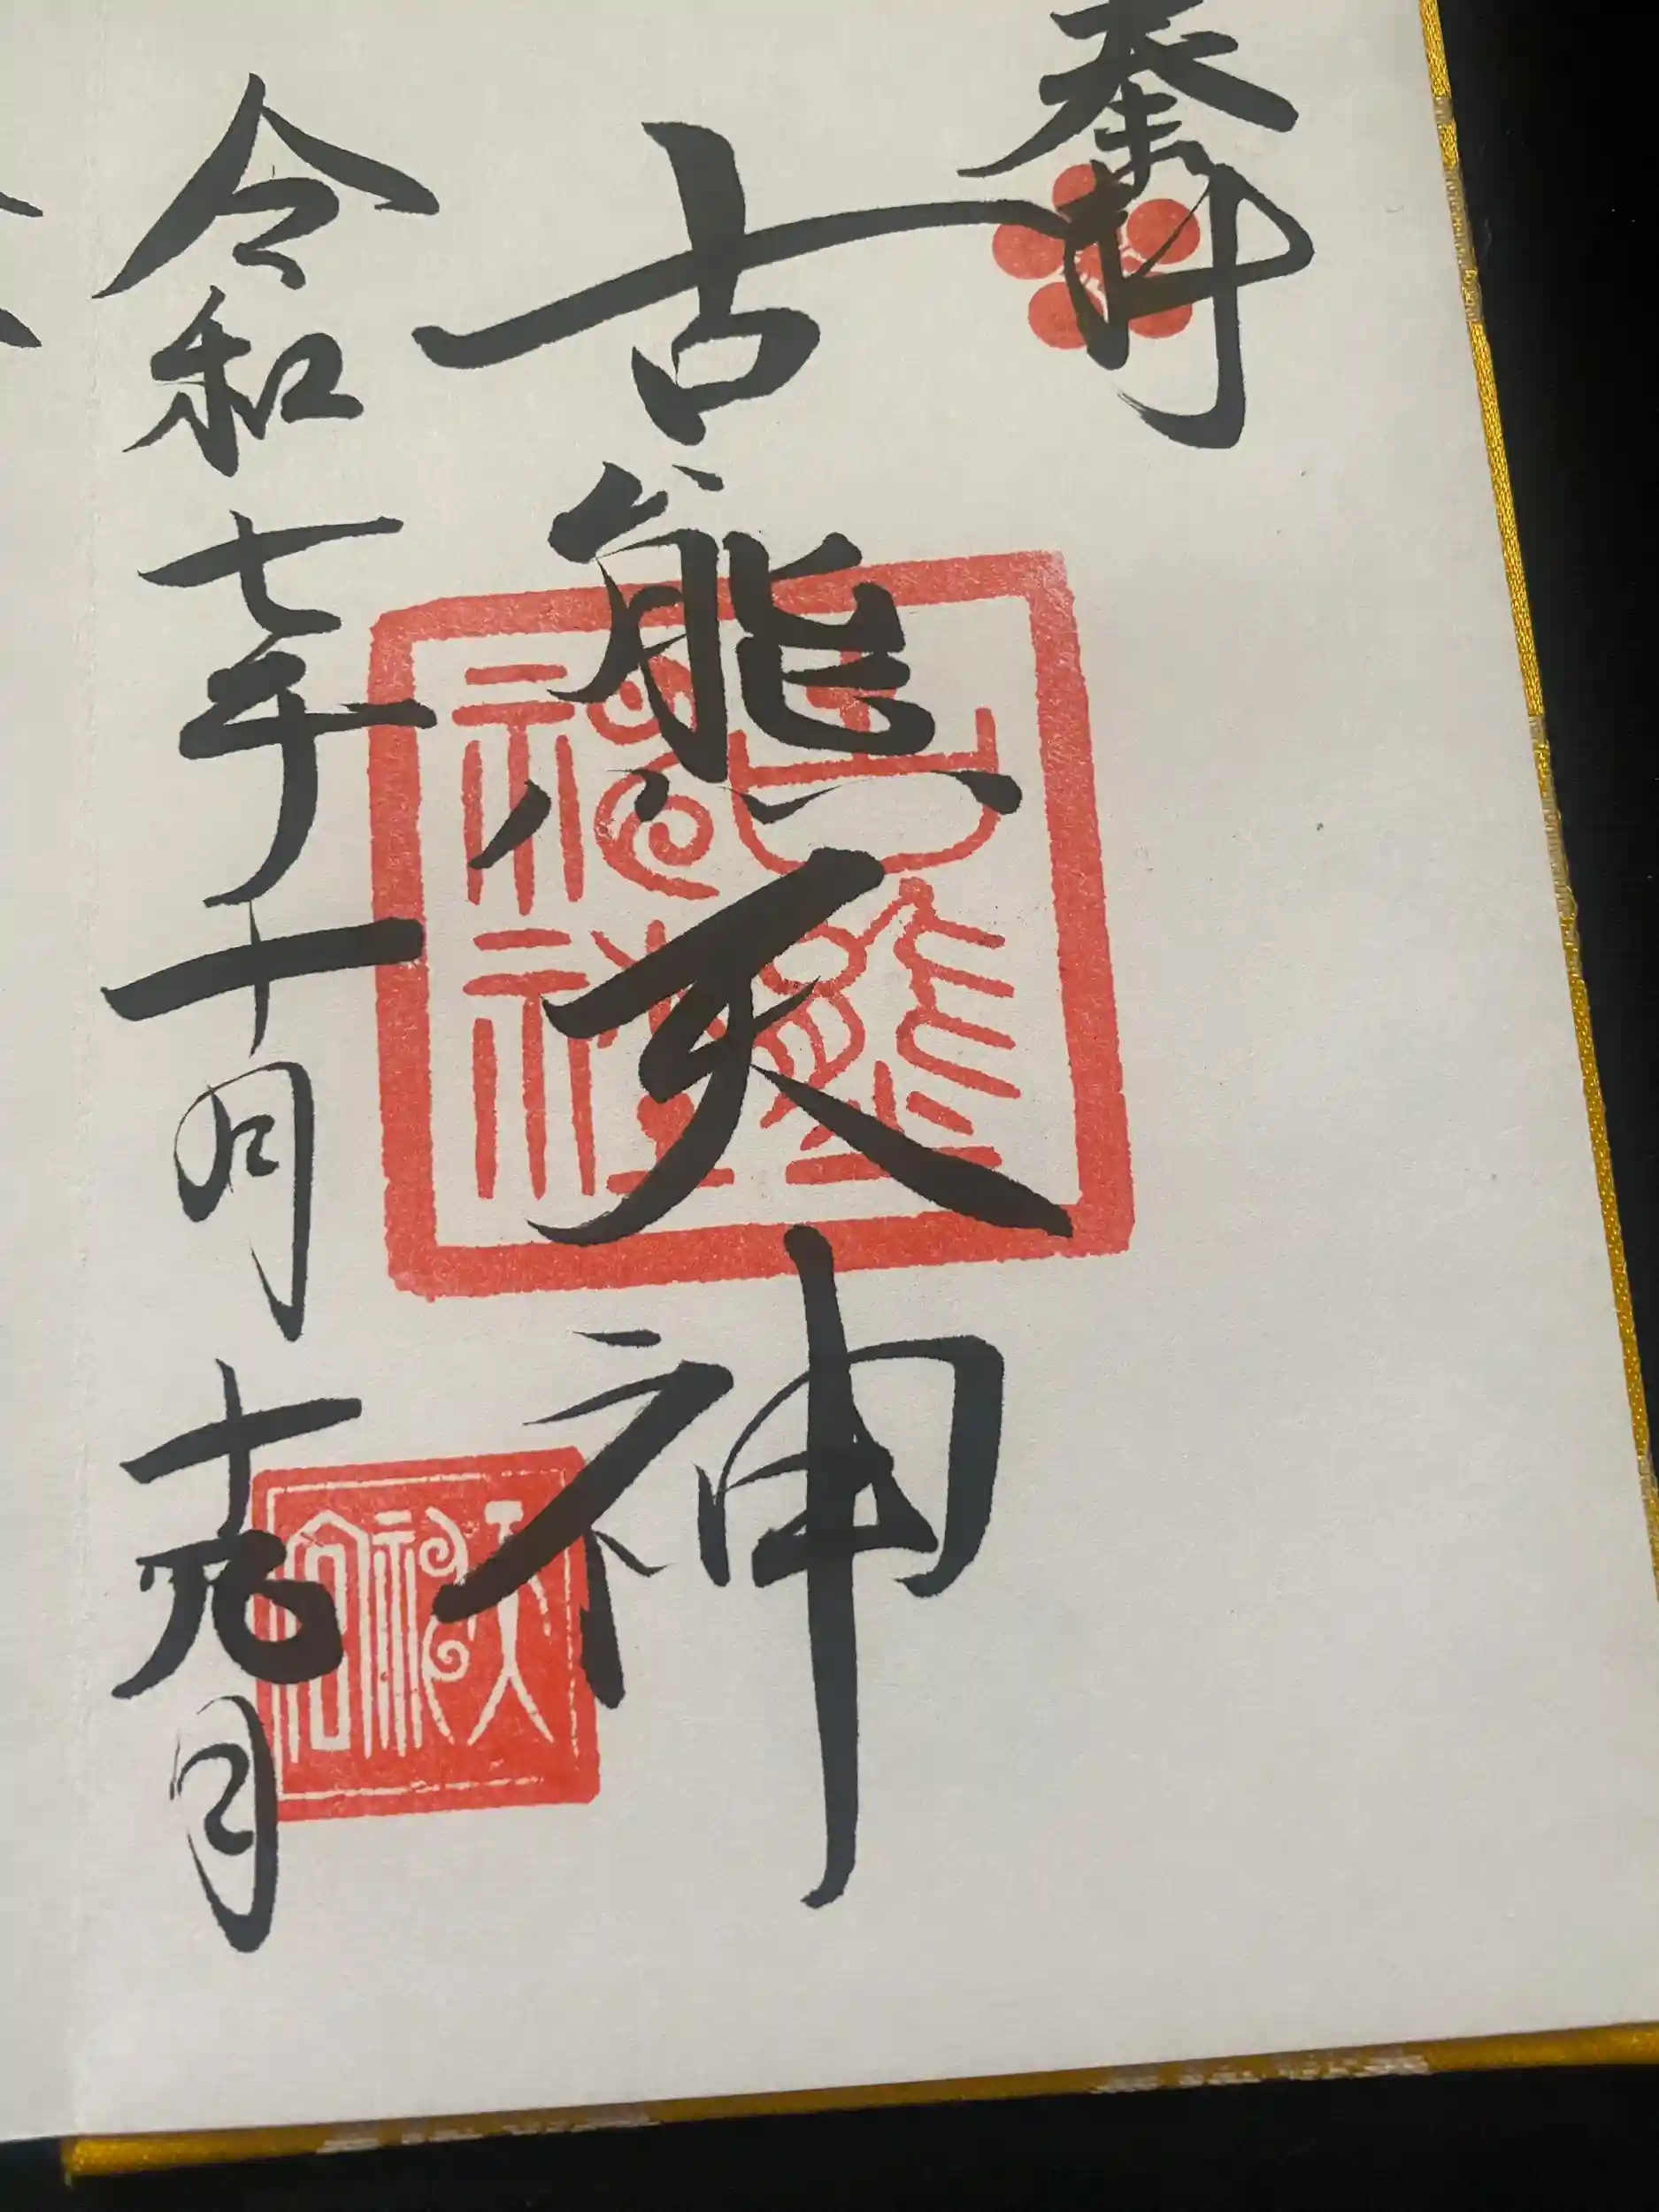 奉拝
古熊天神
令和七年十月十九日
古熊神社
天神宮